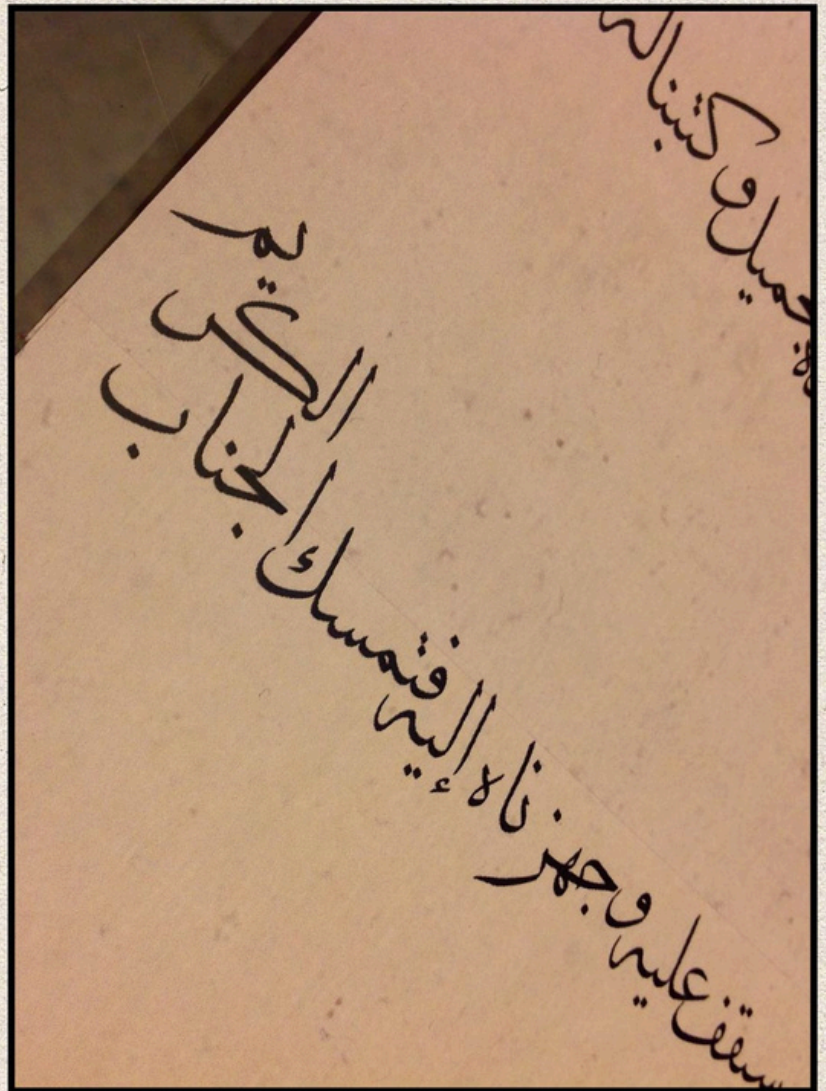 جميل وكتبنا له
عليه وجهزناه إليه فتمسك الجناب الكريم